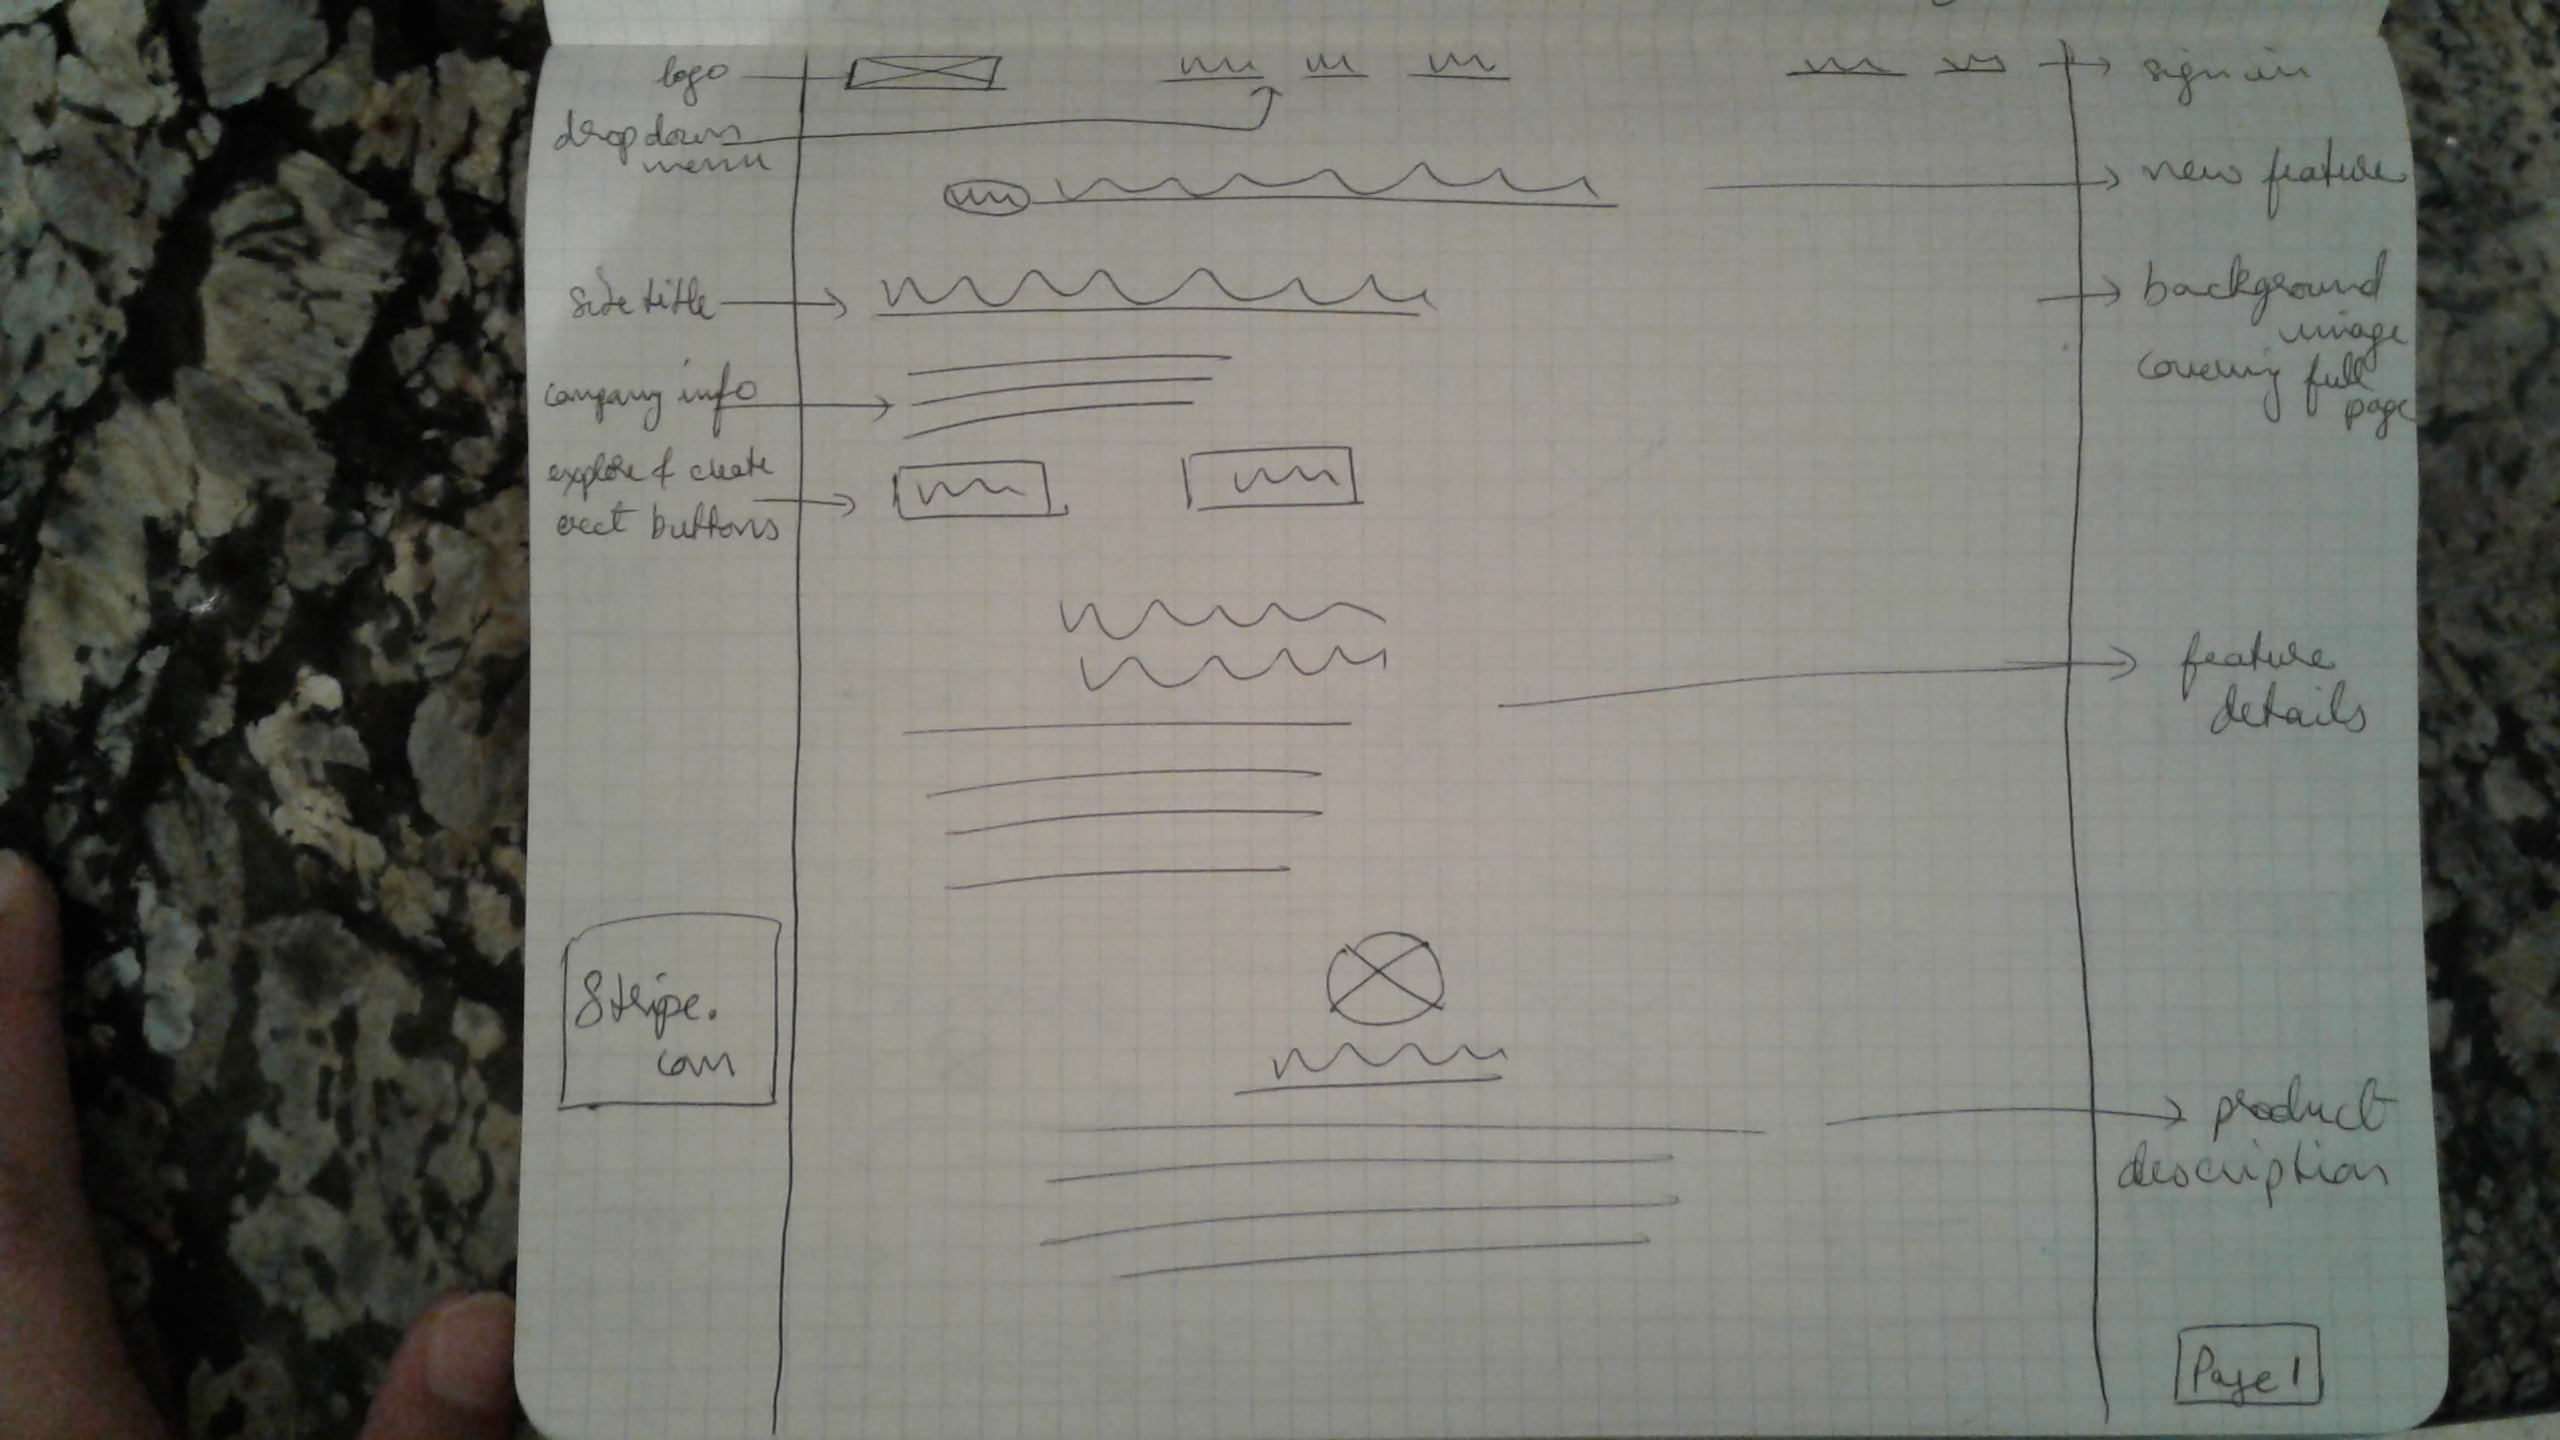 logo
drop down
menu
Site title
company info
explore & create
acct buttons
Stripe.
com
sign in
new feature
background
image
covering full
page
feature
details
product
description
Page 1